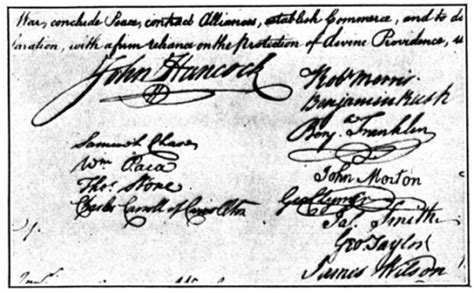 War, conclude Peace, contract Alliances, establish Commerce, and to do
laration, with a firm reliance on the Protection of divine Providence, w
John Hancock
Robt Morris
Benjamin Rush
Benja Franklin
Samuel Chase
Wm Paca
Thos Stone
Charles Carroll of Carrollton
John Morton
Geo Clymer
Jas Smith
Geo Taylor
James Wilson